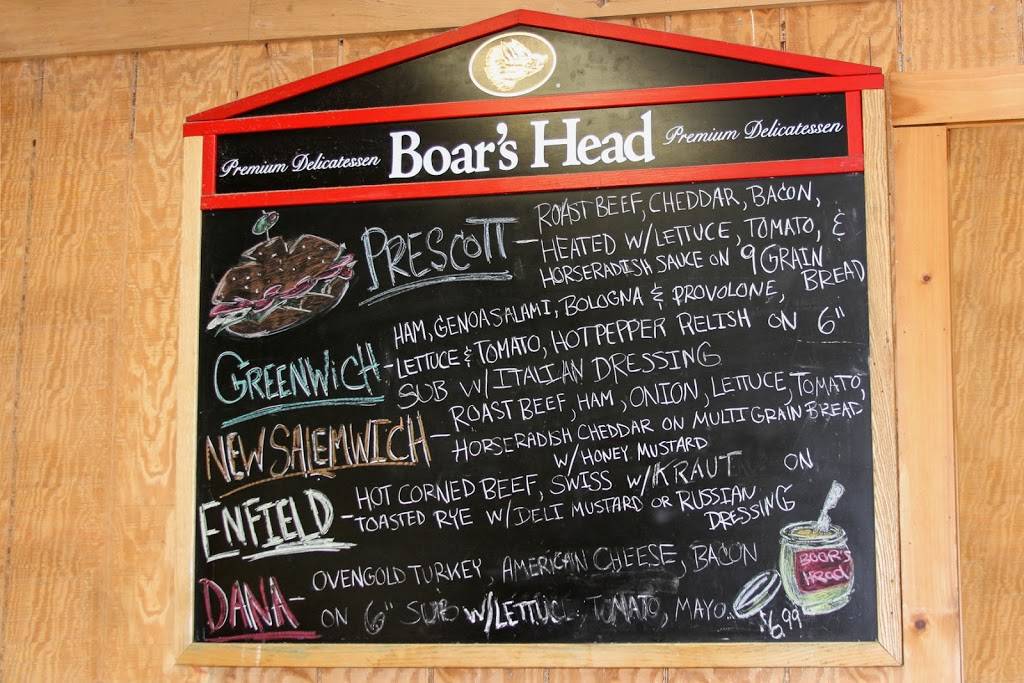 Premium Delicatessen Boar's Head Premium Delicatessen
PRESCOTT - ROAST BEEF, CHEDDAR, BACON,
HEATED W/LETTUCE, TOMATO, &
HORSERADISH SAUCE ON 9 GRAIN
BREAD
GREENWICH - HAM, GENOA SALAMI, BOLOGNA & PROVOLONE,
LETTUCE & TOMATO, HOT PEPPER RELISH ON 6"
SUB W/ITALIAN DRESSING
NEW SALEMWICH - ROAST BEEF, HAM, ONION, LETTUCE, TOMATO,
HORSERADISH CHEDDAR ON MULTIGRAIN BREAD
W/ HONEY MUSTARD
ENFIELD - HOT CORNED BEEF, SWISS W/KRAUT ON
TOASTED RYE W/DELI MUSTARD OR RUSSIAN
DRESSING
DANA - OVENGOLD TURKEY, AMERICAN CHEESE, BACON
ON 6" SUB W/LETTUCE, TOMATO, MAYO..
BOAR'S
HEAD
$6.99